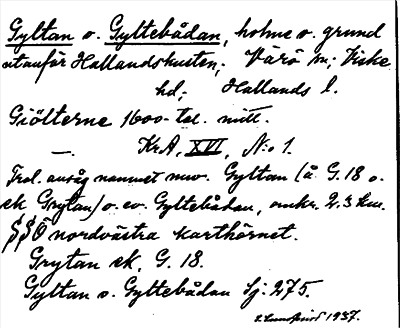 Gyltan o. Gyltebådan, holme o. grund
utanför Hallandskusten; Värö sn; Viske
hd; Hallands l.
Giölterne 1600-tal. mitt.
—. KrA, XVI, N:o 1.
Trol. avsåg namnet nuv. Gyltan (å G. 18 o.
ek Grytan) o. ev. Gyltebådan, omkr. 2.3 km.
SSÖ nordvästra karthörnet.
Grytan ek. G. 18.
Gyltan o. Gyltebådan Sj. 275.
1937.